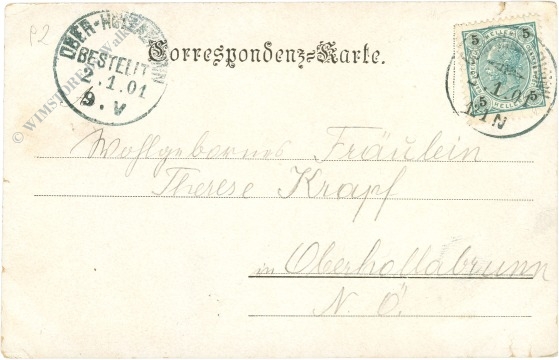 P2
OBER-HOLLABRUNN
BESTELLT
2.1.01
9.V
© WIMSTORE
Correspondenz-Karte.
5 5
HELLER
5 5
1.01
Wohlgebornes Fräulein
Therese Krapf
in Oberhollabrunn
N. Ö.